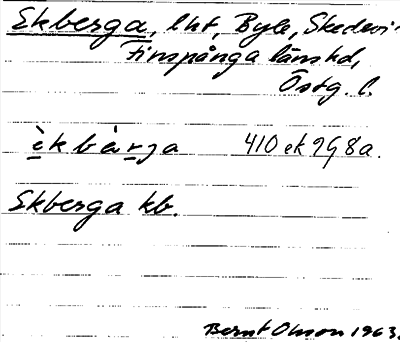 Ekberga, lht, Byle, Skedevi
Finspånga länshd,
Östg. l.
èkbàrja 410 ek 298a.
Ekberga kb.
Bernt Olsson 1963.